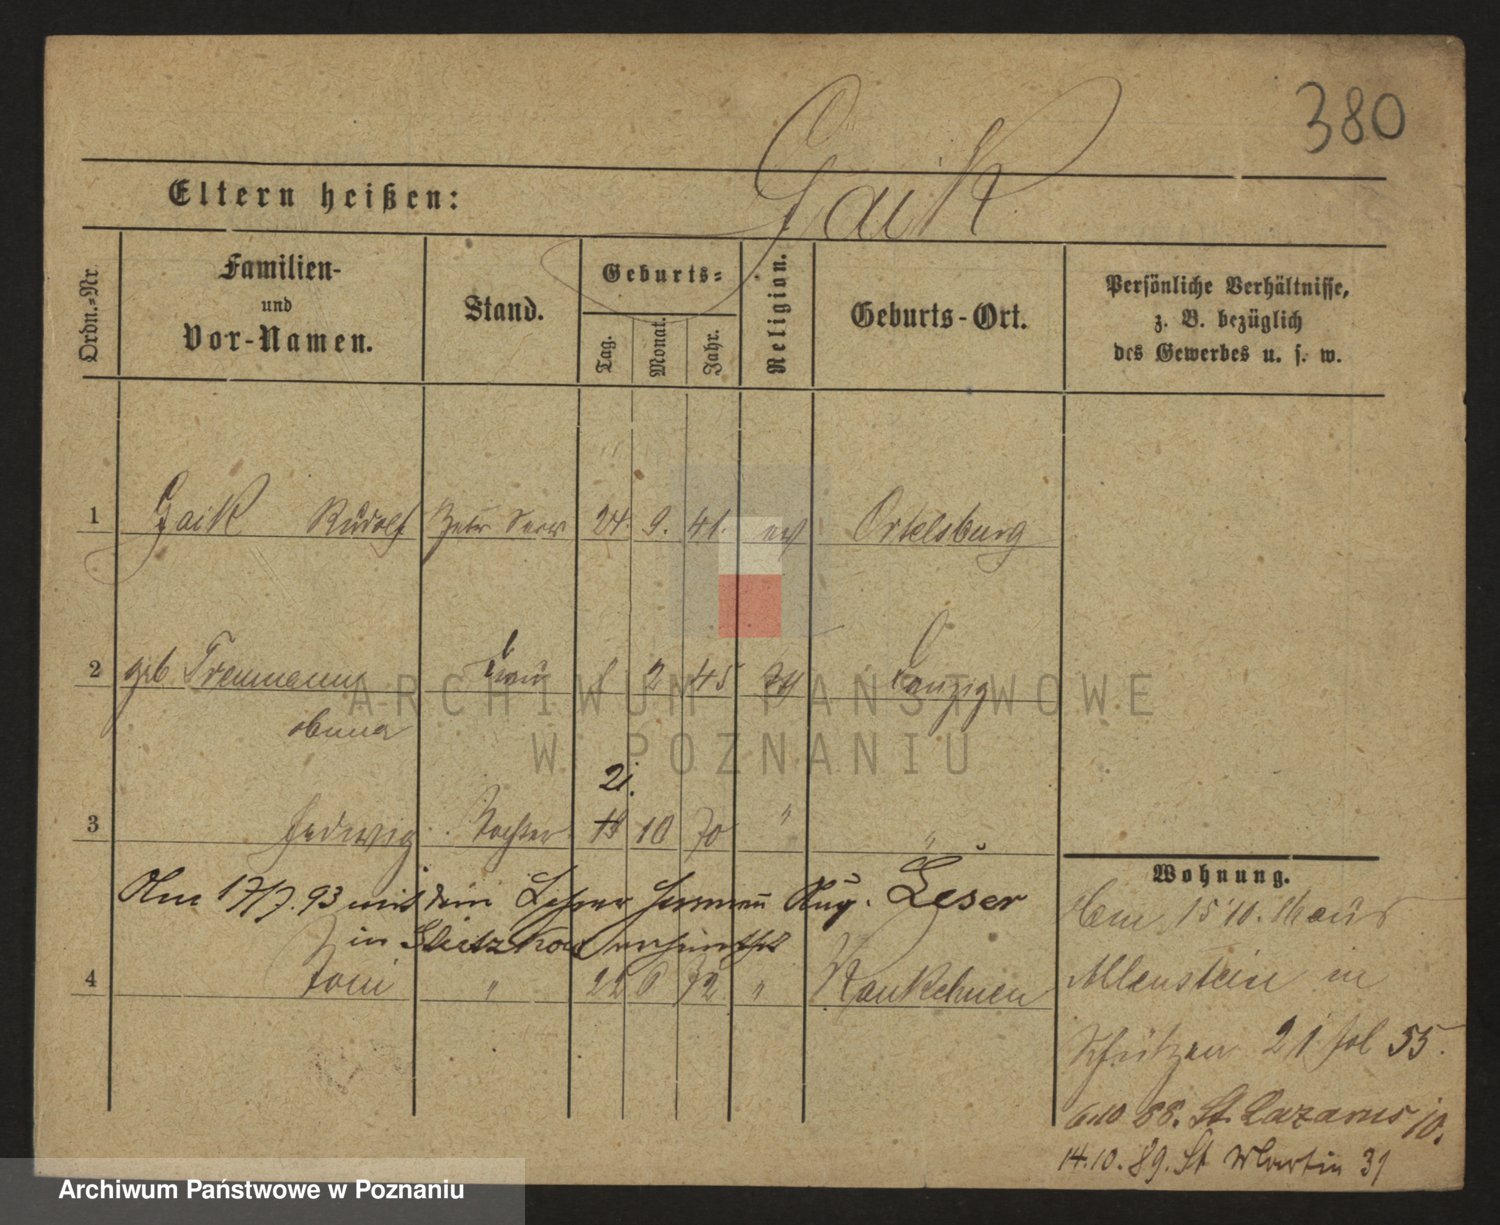 380
Gaik
Eltern heißen:
Ordn.=Nr.
Familien-
und
Vor-Namen.
Stand.
Geburts=
Tag.
Monat.
Jahr.
Religion.
Geburts-Ort.
Persönliche Verhältnisse,
z. B. bezüglich
des Gewerbes u. s. w.
1 Gaik Rudolf 24. 9. 41. ev Ortelsburg
2 geb Frau 2 45 Danzig
ARCHIWUM PAŃSTWOWE
W POZNANIU
21.
3 Hedwig Tochter 10 70 " "
Wohnung.
Am 17/7. 93 mit dem Lehrer Hermann Aug. Leser
in verheirathet
4 Toni " 22 6 72 "
15 10.
Allenstein in
Schützen 21 fol 55.
6.10 88. St. Lazarus 10.
14.10. 89. St Martin 31
Archiwum Państwowe w Poznaniu